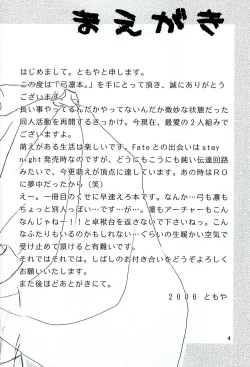 まえがき
はじめまして。ともやと申します。
この度は「弓凛本。」を手にとって頂き、誠にありがとう
ございます。
長い事やってるんだかやってないんだか微妙な状態だった
同人活動を再開するきっかけ。今現在、最愛の2人組みで
ございますよ。
萌えがある生活は楽しいです。Fateとの出会いはstay
night発売時なのですが、どうにもこうにも鈍い伝達回路
みたいで、今更萌えが頂点に達しています。あの時はRO
に夢中だったから（笑）
えー。一冊目のくせに早速えろ本です。…なんか弓も凛も
ちょっと別人っぽい…ですが…。凛もアーチャーもこんな
んじゃなーい！！と卓袱台を返さないで下さいねっ。こん
なふたりもいるのかもしれない…くらいの生暖かい空気で
受け止めて頂けると有難いです。
それではそれでは。しばしのお付き合いをどうぞよろしく
お願いいたします。
また後ほどあとがきにて。
2006 ともや
4